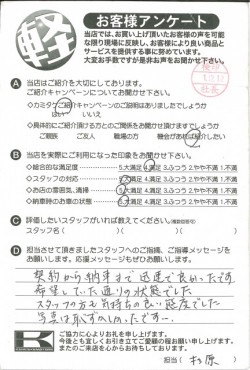 軽
お客様アンケート
当店では、お買い上げ頂いたお客様の声を可能な
限り現場に反映し、お客様により良い商品と
サービスを提供する事に努めています。
大変お手数ですが是非お声をお聞かせ下さい。
A 当店はご紹介を大切にしております。
ご紹介キャンペーンについてお聞かせ下さい
◇カミタケご紹介キャンペーンのご説明はありましたでしょうか
はい いいえ
◇具体的にご紹介頂ける方とのご関係をお聞かせ頂けますでしょうか
ご親族 ご友人 職場の方 機会があれば紹介したい
B 当店を実際にご利用になった印象をお聞かせ下さい。
◇総合的な満足度… 5.大満足 4.満足 3.ふつう 2.やや不満 1.不満
◇スタッフの対応… 5.大満足 4.満足 3.ふつう 2.やや不満 1.不満
◇お店の雰囲気、清掃… 5.大満足 4.満足 3.ふつう 2.やや不満 1.不満
◇納車時のお車の状態… 5.大満足 4.満足 3.ふつう 2.やや不満 1.不満
C 評価したいスタッフがいれば教えてください。(複数回答可)
スタッフ名
D 担当させて頂きましたスタッフへのご指摘、ご指導メッセージを
お願いします。応援メッセージもぜひお願いします。
契約から納車まで迅速で良かったです
希望していた通りの状態でした
スタッフの方も気持ちの良い態度でした
写真は恥ずかしいです…
K
ご協力に心よりお礼を申し上げます。
今後とも宜しくお引き立てご愛顧の程お願い申し上げます。
またのご来店を心からお待ちしております。
担当( 杉原 )